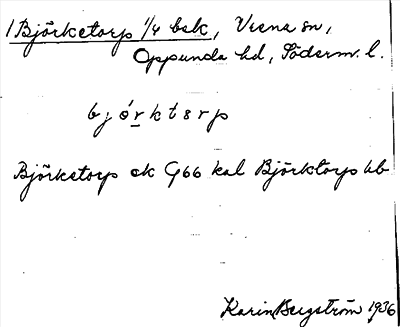 1 Björketorp 1/4 bsk, Vrena sn,
Oppunda hd, Söderm. l.
bjórktsrp
Björketorp ek G66 kal Björktorp hb
Karin Bergström 1936